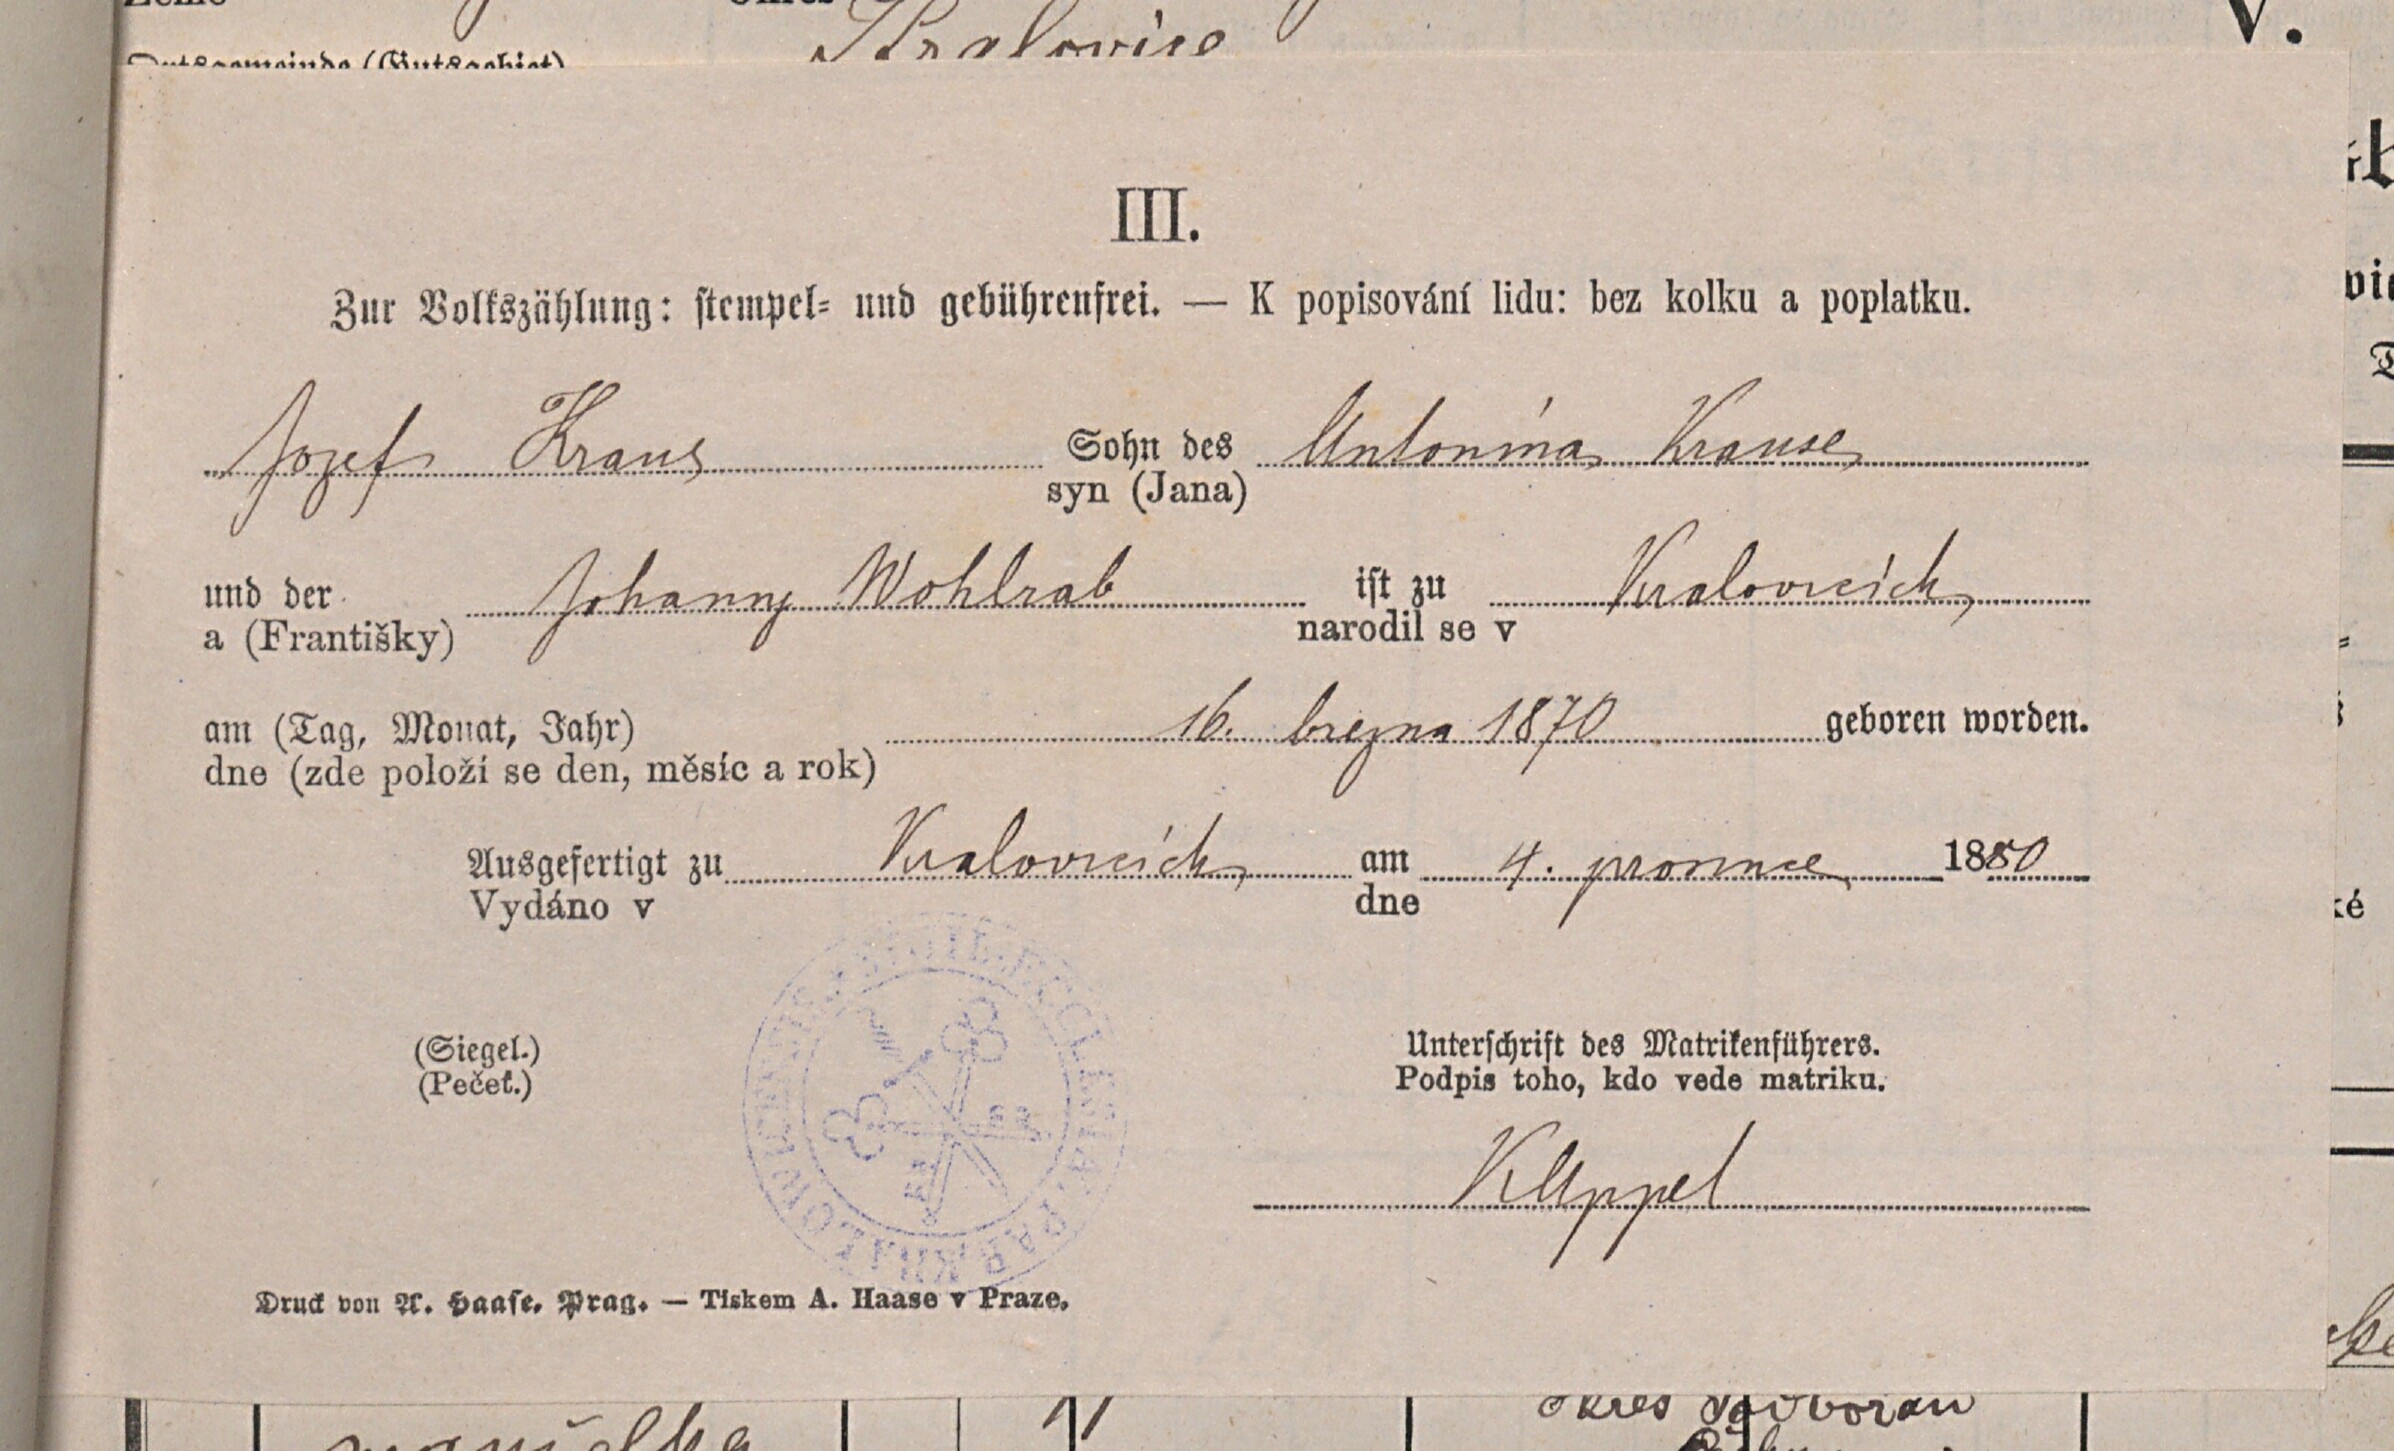 Kralovice
V.
Ortsgemeinde (Gutsgebiet)
III.
Zur Volkszählung: stempel= und gebührenfrei. — K popisování lidu: bez kolku a poplatku.
Jozef Kraus Sohn des Antonína Krause
syn (Jana)
und der Johanny Wohlrab ist zu Kralovicích
a (Františky) narodil se v
am (Tag, Monat, Jahr) 16. března 1870 geboren worden.
dne (zde položí se den, měsíc a rok)
Ausgefertigt zu Kralovicích am 4. prosince 1880
Vydáno v dne
(Siegel.)
(Pečeť.)
Unterschrift des Matrikenführers.
Podpis toho, kdo vede matriku.
Druck von A. Haase, Prag. — Tiskem A. Haase v Praze.
manželka
okres